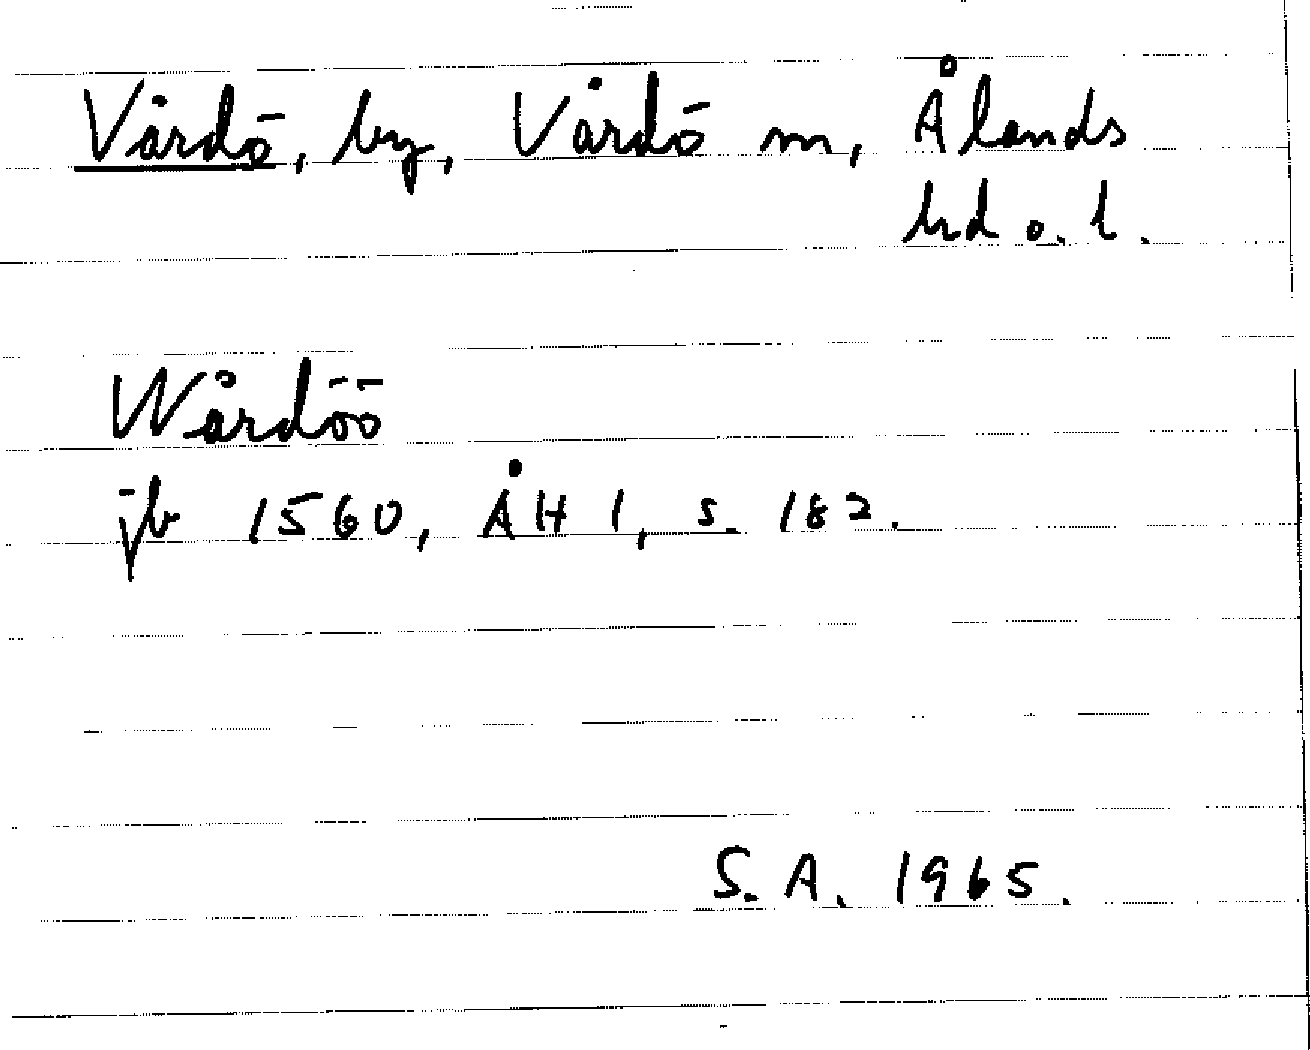 Vårdö, by, Vårdö sn, Ålands
hd o. l.
Wårdöö
jb 1560, ÅH 1, s. 182.
S. A. 1965.